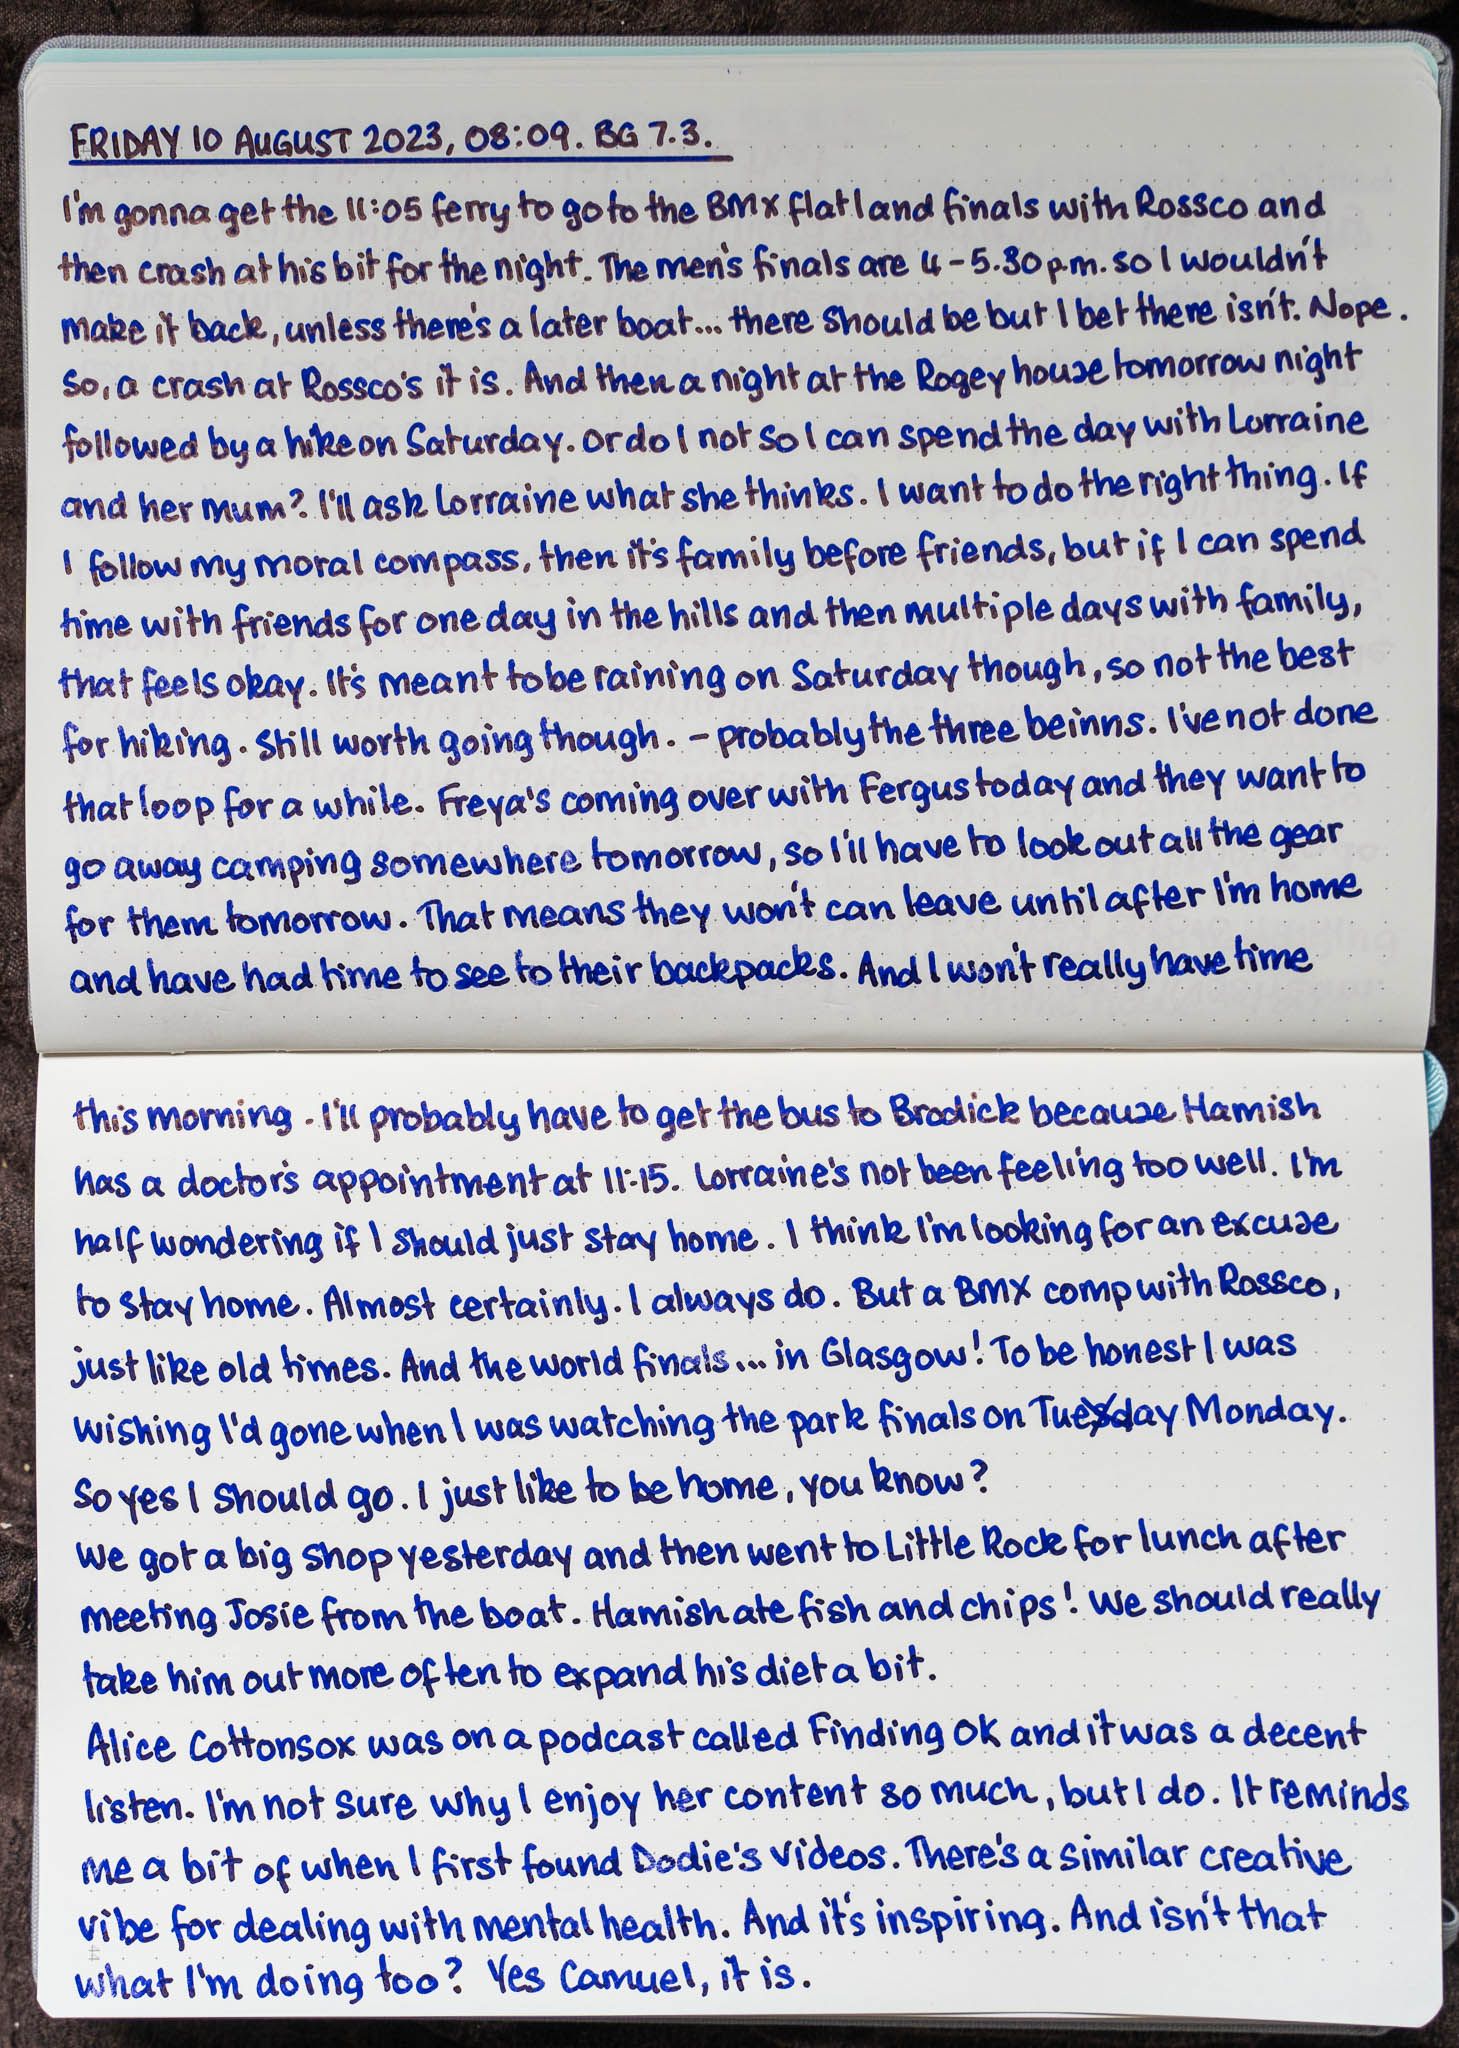 FRIDAY 10 AUGUST 2023, 08:09. BG 7.3.
I'm gonna get the 11:05 ferry to go to the BMX flatland finals with Rossco and
then crash at his bit for the night. The men's finals are 4-5.30p.m. so I wouldn't
make it back, unless there's a later boat... there should be but I bet there isn't. Nope.
So, a crash at Rossco's it is. And then a night at the Rogey house tomorrow night
followed by a hike on Saturday. Or do I not so I can spend the day with Lorraine
and her mum? I'll ask Lorraine what she thinks. I want to do the right thing. If
I follow my moral compass, then it's family before friends, but if I can spend
time with friends for one day in the hills and then multiple days with family,
that feels okay. It's meant to be raining on Saturday though, so not the best
for hiking. Still worth going though. - probably the three beinns. I've not done
that loop for a while. Freya's coming over with Fergus today and they want to
go away camping somewhere tomorrow, so I'll have to look out all the gear
for them tomorrow. That means they won't can leave until after I'm home
and have had time to see to their backpacks. And I won't really have time
this morning. I'll probably have to get the bus to Brodick because Hamish
has a doctor's appointment at 11:15. Lorraine's not been feeling too well. I'm
half wondering if I should just stay home. I think I'm looking for an excuse
to stay home. Almost certainly. I always do. But a BMX comp with Rossco,
just like old times. And the world finals... in Glasgow! To be honest I was
wishing I'd gone when I was watching the park finals on Tuesday Monday.
So yes I should go. I just like to be home, you know?
We got a big shop yesterday and then went to Little Rock for lunch after
meeting Josie from the boat. Hamish ate fish and chips! We should really
take him out more often to expand his diet a bit.
Alice Cottonsox was on a podcast called Finding OK and it was a decent
listen. I'm not sure why I enjoy her content so much, but I do. It reminds
me a bit of when I first found Dodie's videos. There's a similar creative
vibe for dealing with mental health. And it's inspiring. And isn't that
what I'm doing too? Yes Camuel, it is.